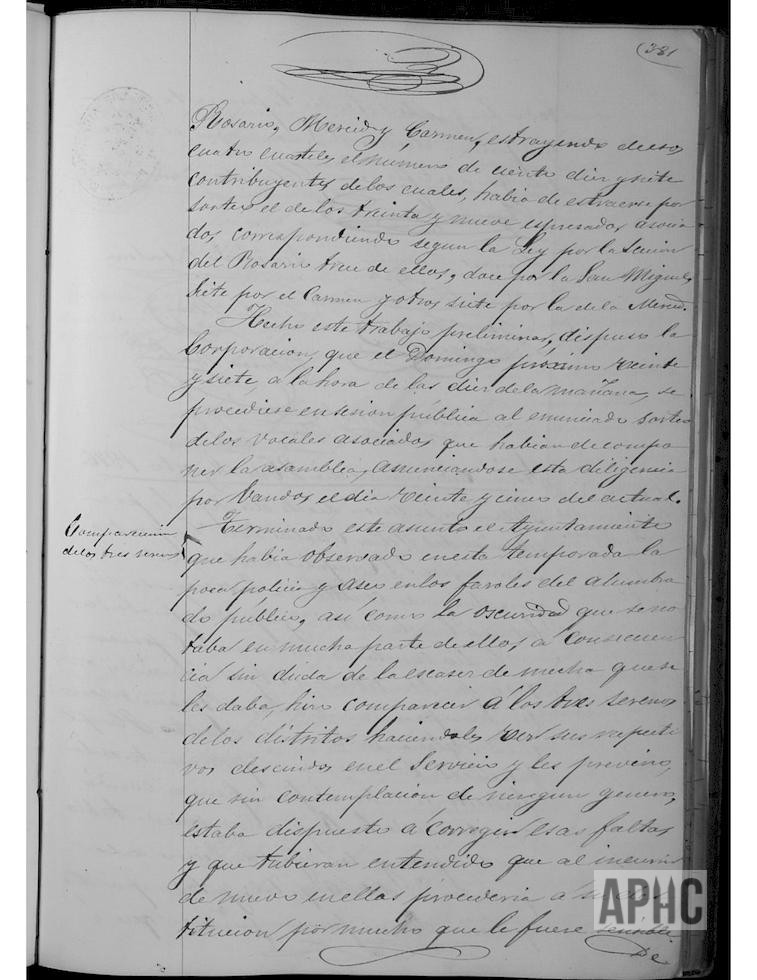 (381
Rosario, Merced y Carmen, estrayendo de esos
cuatro cuarteles el número de ciento diez y siete
contribuyentes de los cuales, habia de estraerse por
sorteo el de los treinta y nueve espresados asocia
dos, correspondiendo segun la Ley por la Seccion
del Rosario trece de ellos, doce por la San Miguel,
siete por el Carmen y otros siete por la de la Merced.
Hecho este trabajo preliminar, dispuso la
Corporacion, que el Domingo próximo veinte
y siete, a la hora de las diez de la mañana, se
procediese en sesion pública al enunciado sorteo
de los vocales asociados que habian de compo
ner la asamblea, anunciandose esta diligencia
por bandos, el dia veinte y cinco del actual.
Comparecencia
de los tres serenos
Terminado este asunto el Ayuntamiento
que habia observado en esta temporada la
poca policia y aseo en los faroles del alumbra
do público, así como la oscuridad que se no
taba en mucha parte de ellos, a consecuen
cia sin duda de la escasez de mecha que se
les daba, hizo comparecer á los tres serenos
de los distritos haciendoles ver sus respecti
vos descuidos en el Servicio y les previno,
que sin contemplacion de ningun genero,
estaba dispuesto á corregir esas faltas
y que tubieran entendido que al incurrir
de nuevo en ellas procederia á su des
titucion por mucho que le fuere sensible
De
APHC